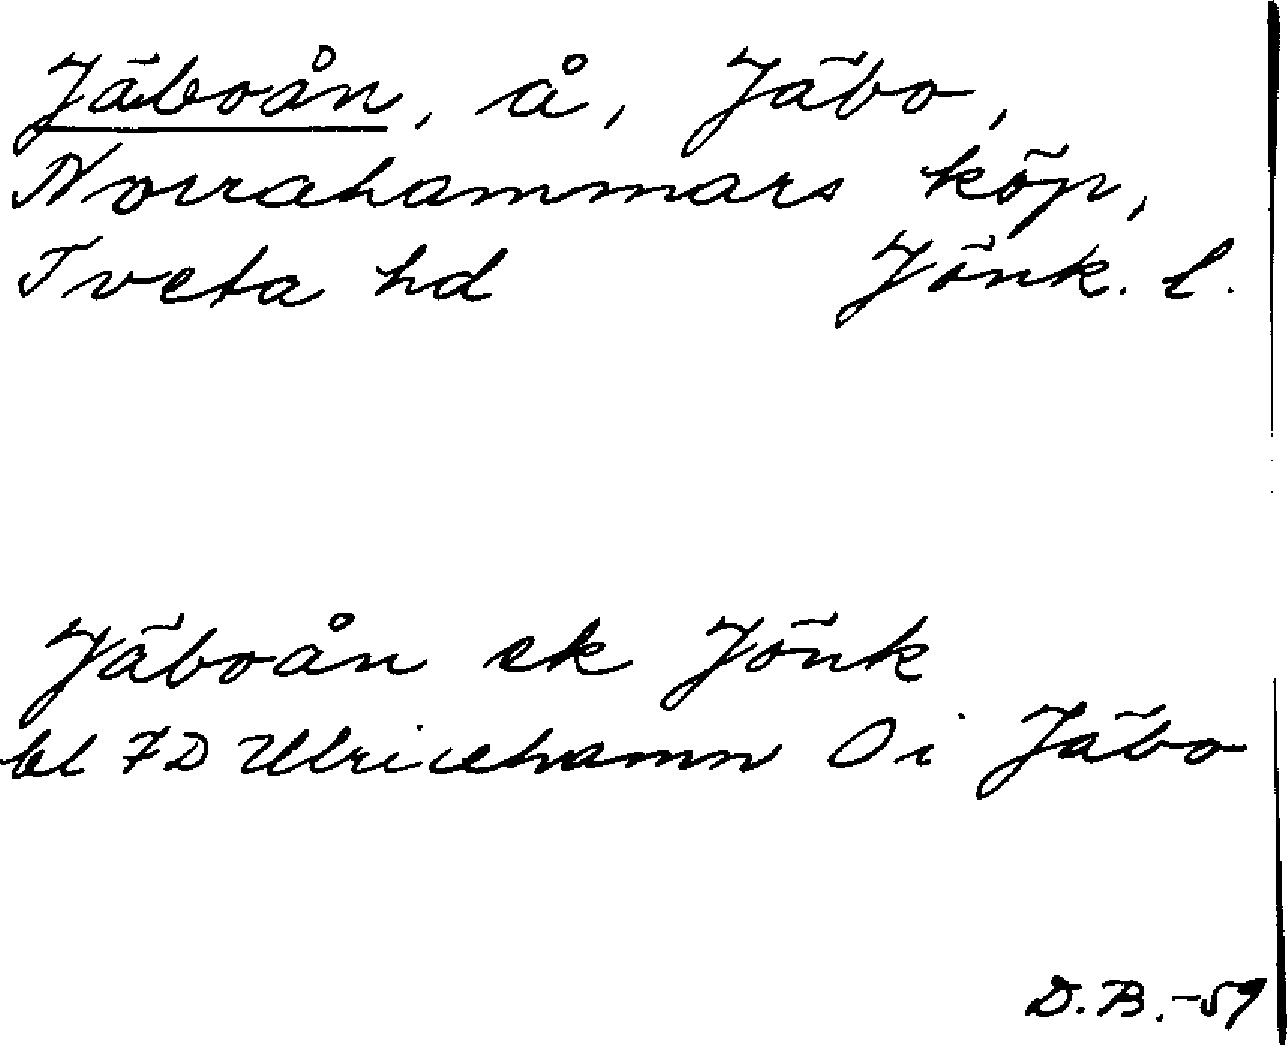 Jäboån, å, Jäbo,
Norrahammars köp,
Tveta hd Jönk. l.
Jäboån ek Jönk
bl 7D Ulricehamn Oi Jäbo
D.B.-59